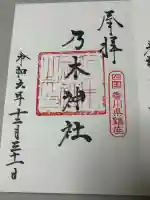 奉拝
四国 香川県鎮座
乃木神社
令和六年十二月三十一日